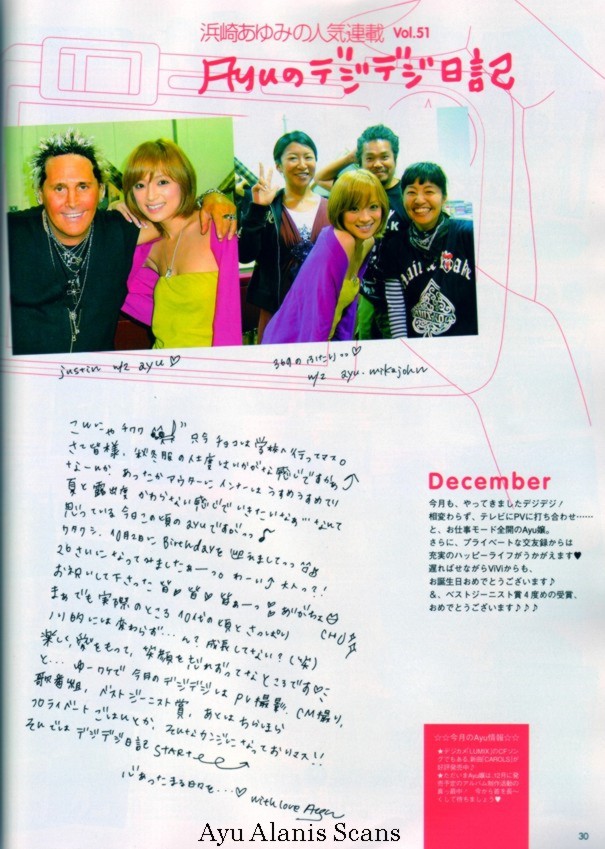 浜崎あゆみの人気連載 Vol.51
Ayuのデジデジ日記
justin w/z ayu ♡
w/z ayu・mikajohn
こんにちゃ チワワ 只今チョコは学校へ行ってマス。
さて皆様、秋冬服の仕度はいかがな感じですかぁ
なーんか、あったかアウターにインナーはうすめうすめで
夏と露出度かわらない感じでいきたいなぁ…なんて
思っている今日この頃のayuですがっっ
ワタクシ、10月2日にBirthdayを迎えましてっっ
26さいになってみましたぁーっ。わーい 大人っ?!
お祝いして下さった皆 皆 皆ぁーっ ありがちゅ
まぁでも実際のところ 10代の頃とさっぱり CHU
ノリ的には変わらず…ん? 成長してない? (笑)
楽しく、夢をもって、笑顔を忘れずってなところです♡、
と…ゆーワケで今月のデジデジは PV撮影、CM撮り、
歌番組、ベストジーニスト賞、あとはちらほら
プライベートごはんとか、そんなカンジになっておりマス!!
それでは デジデジ日記 START
心あったまる日々を…♡ with love Ayu
December
今月も、やってきましたデジデジ!
相変わらず、テレビにPVに打ち合わせ……
と、お仕事モード全開のAyu嬢。
さらに、プライベートな交友録からは
充実のハッピーライフがうかがえます♥
遅ればせながらViViからも、
お誕生日おめでとうございます♪
&、ベストジーニスト賞4度めの受賞、
おめでとうございます♪♪♪
☆☆今月のAyu情報☆☆
★デジカメ「LUMIX」のCFソン
グでもある、新曲「CAROLS」が
好評発売中♪
★ただいまAyu嬢は、12月に発
売予定のアルバム制作活動の
真っ最中! 今から首を長~
くして待ちましょう♥
30
Ayu Alanis Scans